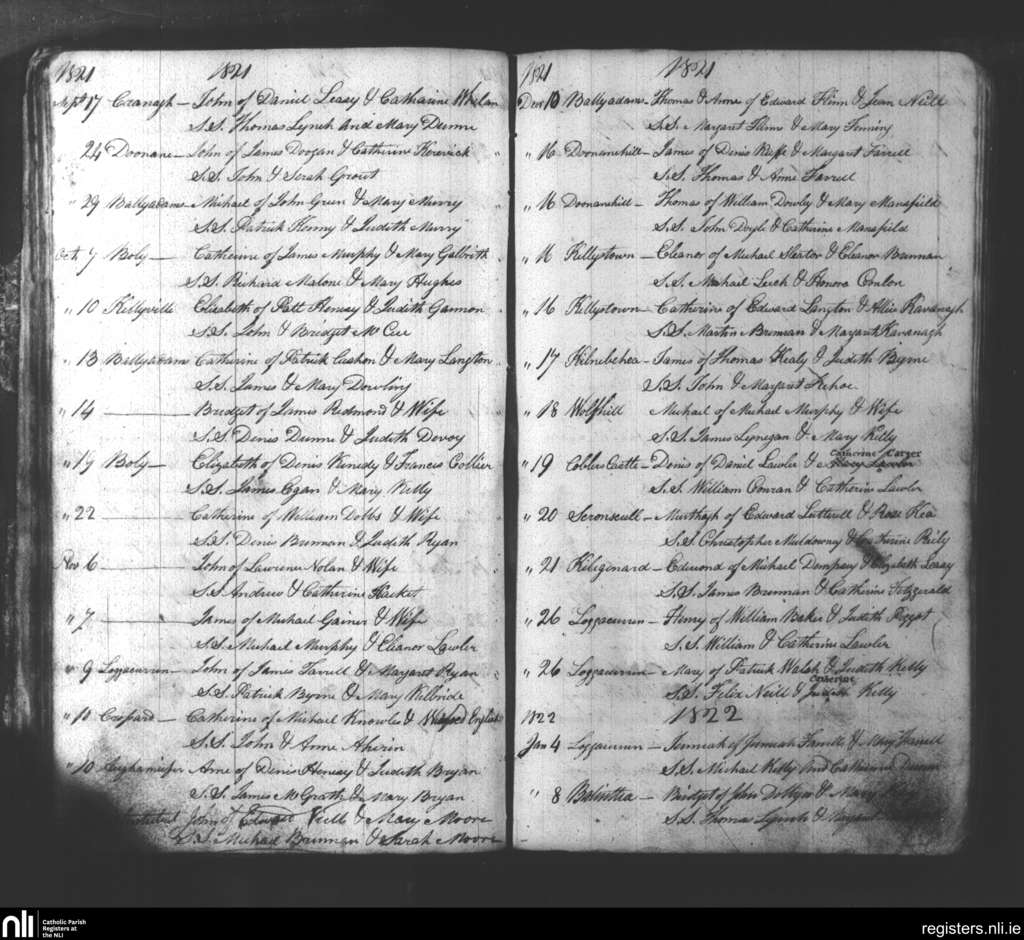 1821 1821
Sept 17 Cranagh — John of Daniel Leasy & Catharine Whelan
S.S. Thomas Lynch And Mary Dunne
24 Doonane — John of James Doogan & Catherine
S.S. John & Sarah Grout
" 29 Ballyadams Michael of John Green & Mary Murry
S.S. Patrick Henny & Judith Murry
Oct. 7 Boly — Catherine of James Murphy & Mary Galbrith
S.S. Richard Malone & Mary Hughes
" 10 Kellyville Elizabeth of Patt Henesy & Judith Gannon
S.S. John & Bridget McCue
" 13 Ballyadam Catherine of Patrick Cashon & Mary Langton
S.S. James & Mary Dowling
" 14 — Bridget of James Redmond & Wife
S.S. Denis Dunne & Judith Devoy
" 19 Boly — Elizabeth of Denis Kenedy & Francis Collier
S.S. James Egan & Mary Kelly
" 22 — Catherine of William Dobbs & Wife
S.S. Denis Brennan & Judith Ryan
Nov 6 — John of Lawrence Nolan & Wife
S.S. Andrew & Catherine Hacket
" 7 — James of Michael Gainer & Wife
S.S. Michael Murphy & Eleanor Lawler
" 9 Loggacurren — John of James Farrell & Margaret Ryan
S.S. Patrick Byrne & Mary Kilbride
" 10 — Catherine of Michael Knowles & English
S.S. John & Anne Aherin
" 10 Anne of Denis Henesy & Judith Bryan
S.S. James McGrath & Mary Bryan
John of Edward Kelb & Mary Moore
S.S. Michael Brennan & Sarah Moore
1821 1821
Decr 10 Ballyadams Thomas & Anne of Edward Flinn & Jean Neill
S.S. Margaret Flinn & Mary Fening
" 16 Doonanehill — James of Denis Keffe & Margaret Farrell
S.S. Thomas & Anne Farrell
" 16 Doonanehill — Thomas of William Dowly & Mary Mansfield
S.S. John Doyle & Catherine Mansfield
" 16 Kellystown — Eleanor of Michael Slator & Eleanor Brennan
S.S. Michael Leech & Honora Conlon
" 16 Kellystown — Catherine of Edward Langton & Allice Kavanagh
S.S. Martin Brennan & Margaret Kavanagh
" 17 Kilnebehea — James of Thomas Healy & Judith Byrne
S.S. John & Margaret Kehoe
" 18 Wolfhill Michael of Michael Murphy & Wife
S.S. James Lynegan & Mary Kelly
Catherine Carger
" 19 Coblers Castle — Denis of Daniel Lawler & Mary Lawler
S.S. William Conran & Catherine Lawler
" 20 Scronscull — Murthagh of Edward Lutterell & Rose Kea
S.S. Christopher Muldowny & Catherine Reily
" 21 Kilegonard — Edmond of Michael Dempsey & Elizabeth Leasy
S.S. James Brennan & Catherine Fitzgerald
" 26 Loggacurren — Henry of William Baker & Judith
S.S. William & Catherine Lawler
" 26 Loggacurren — Mary of Patrick Walsh & Judith Kelly
Catherine
S.S. Felix Neill & Judith Kelly
1822 1822
Jan 4 Loggacurren — Jeremiah of Jeremiah & Mary Farrell
S.S. Michael Kelly And Catherine
" 8 — Bridget of John & Mary
S.S. Thomas Lynch & Margaret
nli Catholic Parish
Registers at
the NLI
registers.nli.ie